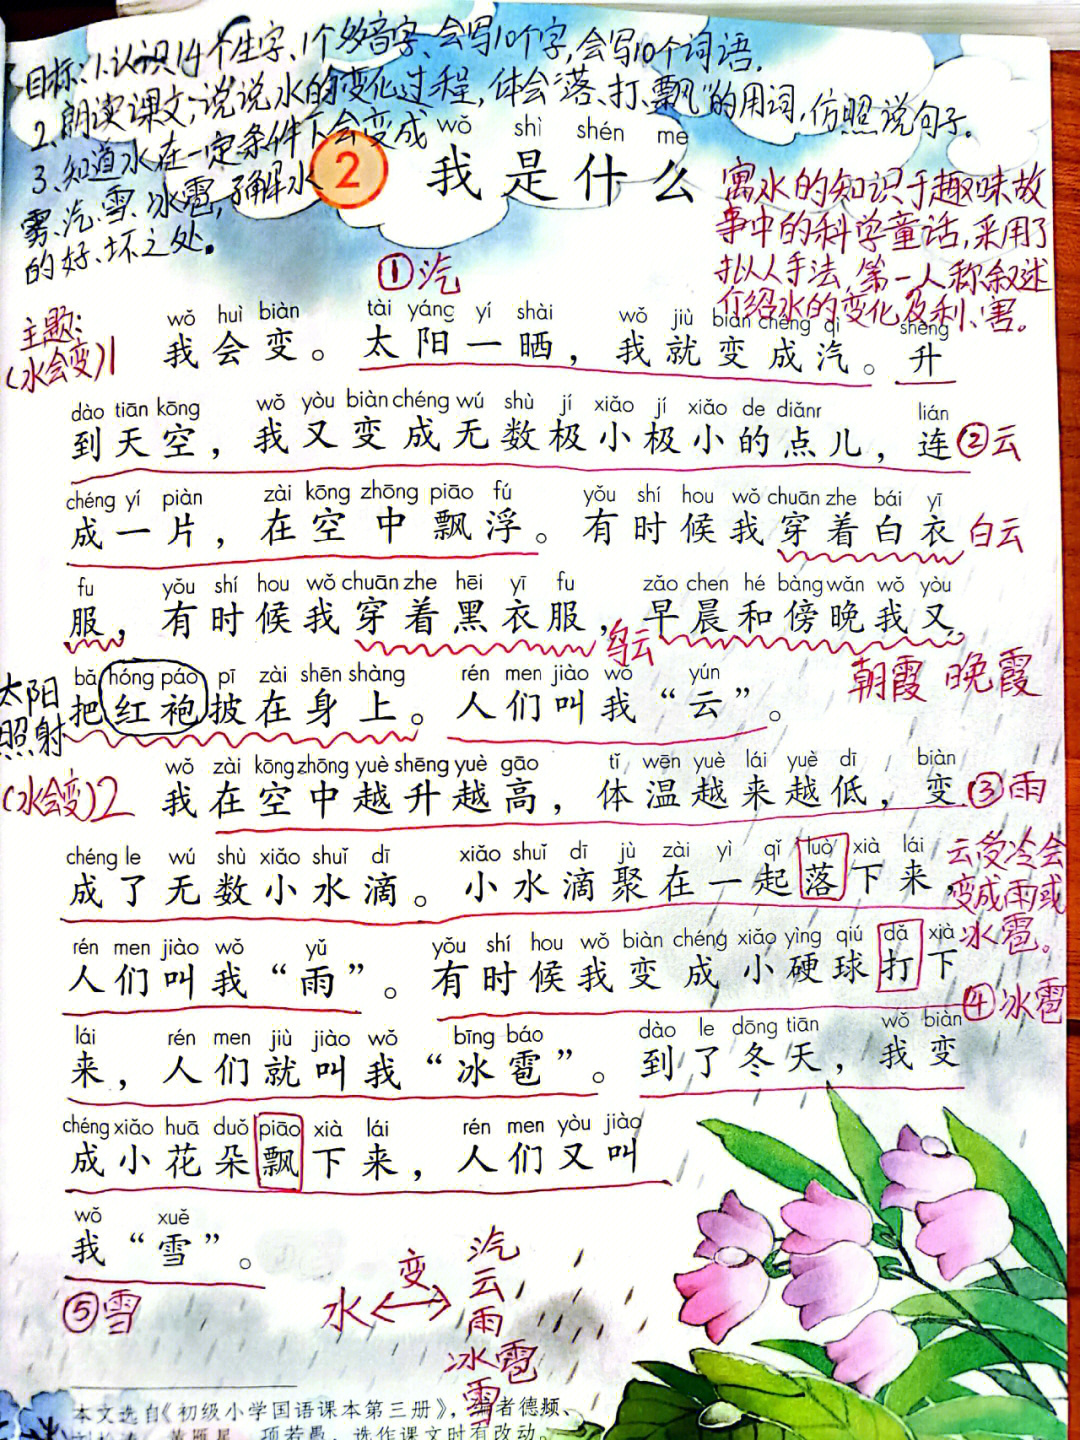 目标:1.认识14个生字、1个多音字、会写10个字,会写10个词语.
2.朗读课文;说说水的变化过程,体会"落、打、飘"的用词,仿照说句子.
3.知道水在一定条件下会变成
雾、汽、雪、冰雹,了解水
的好、坏之处。
wǒ shì shén me
2 我是什么
寓水的知识于趣味故
事中的科学童话,采用了
拟人手法,第一人称叙述
介绍水的变化及利、害。
①汽
主题:
(水会变)1
wǒ huì biàn tài yáng yí shài wǒ jiù biàn chéng qì shēng
我会变。太阳一晒,我就变成汽。升
dào tiān kōng wǒ yòu biàn chéng wú shù jí xiǎo jí xiǎo de diǎnr lián
到天空,我又变成无数极小极小的点儿,连
②云
chéng yí piàn zài kōng zhōng piāo fú yǒu shí hou wǒ chuān zhe bái yī
成一片,在空中飘浮。有时候我穿着白衣
白云
fu yǒu shí hou wǒ chuān zhe hēi yī fu zǎo chen hé bàng wǎn wǒ yòu
服,有时候我穿着黑衣服,早晨和傍晚我又
乌云
朝霞 晚霞
太阳
照射
bǎ hóng páo pī zài shēn shàng rén men jiào wǒ yún
把红袍披在身上。人们叫我“云”。
(水会变)2
wǒ zài kōng zhōng yuè shēng yuè gāo tǐ wēn yuè lái yuè dī biàn
我在空中越升越高,体温越来越低,变
③雨
chéng le wú shù xiǎo shuǐ dī xiǎo shuǐ dī jù zài yì qǐ luò xià lái
成了无数小水滴。小水滴聚在一起落下来,
云受冷会
变成雨或
冰雹。
rén men jiào wǒ yǔ yǒu shí hou wǒ biàn chéng xiǎo yìng qiú dǎ xià
人们叫我“雨”。有时候我变成小硬球打下
④冰雹
lái rén men jiù jiào wǒ bīng báo dào le dōng tiān wǒ biàn
来,人们就叫我“冰雹”。到了冬天,我变
chéng xiǎo huā duǒ piāo xià lái rén men yòu jiào
成小花朵飘下来,人们又叫
wǒ xuě
我“雪”。
⑤雪
水 变 汽
云
雨
冰雹
雪
本文选自《初级小学国语课本第三册》,编者德频、
项若愚,选作课文时有改动。